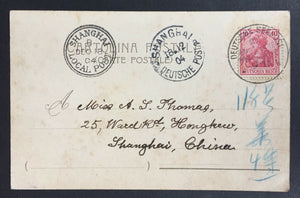 CARTOLINA POSTALE
CARTE POSTALE
SHANGHAI
B
DEC 18
04
LOCAL POST
SHANGHAI
04
DEUTSCHE POST
DEUTSCHE SEEPOST
10
DEUTSCHES REICH
A
Miss A. S. Thomas,
25, Ward Rd, Hongkew,
Shanghai, China